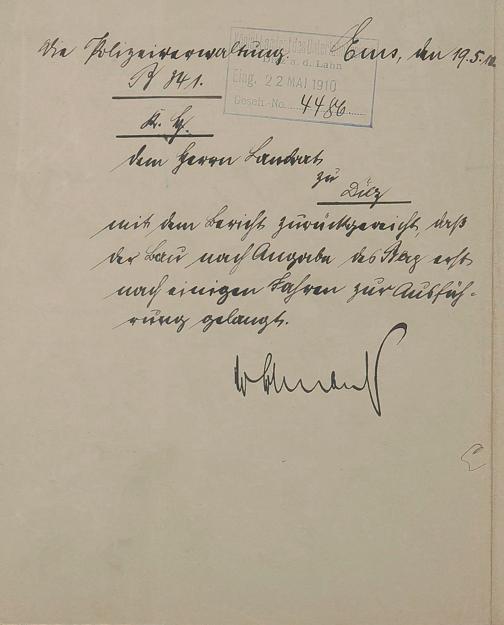 Die Polizeiverwaltung. Ems, den 19.5.10.
Königl. Landrat des Unterlahnkr.
Diez a. d. Lahn
Eing. 22 MAI 1910
Gesch.-No. 4486
941.
K. H.
dem Herrn Landrat
zu
Diez
mit dem Bericht zurückgereicht, daß
der Bau nach Angabe des erst
nach einigen Jahren zur Ausfüh-
rung gelangt.